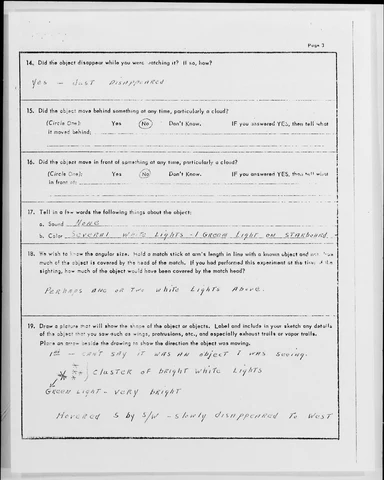 Page 3
14. Did the object disappear while you were watching it? If so, how?
Yes - Just Disappeared
15. Did the object move behind something at any time, particularly a cloud?
(Circle One): Yes No Don't Know. IF you answered YES, then tell what
it moved behind:
16. Did the object move in front of something at any time, particularly a cloud?
(Circle One): Yes No Don't Know. IF you answered YES, then tell what
in front of:
17. Tell in a few words the following things about the object:
a. Sound None
b. Color Several White Lights - 1 Green Light on Starboard
18. We wish to know the angular size. Hold a match stick at arm's length in line with a known object and note how
much of the object is covered by the head of the match. If you had performed this experiment at the time of the
sighting, how much of the object would have been covered by the match head?
Perhaps one or two white lights above.
19. Draw a picture that will show the shape of the object or objects. Label and include in your sketch any details
of the object that you saw such as wings, protrusions, etc., and especially exhaust trails or vapor trails.
Place an arrow beside the drawing to show the direction the object was moving.
1st - can't say it was an object I was seeing.
Cluster of bright white lights
Green light - very bright
Hovered S by S/W - slowly disappeared to West